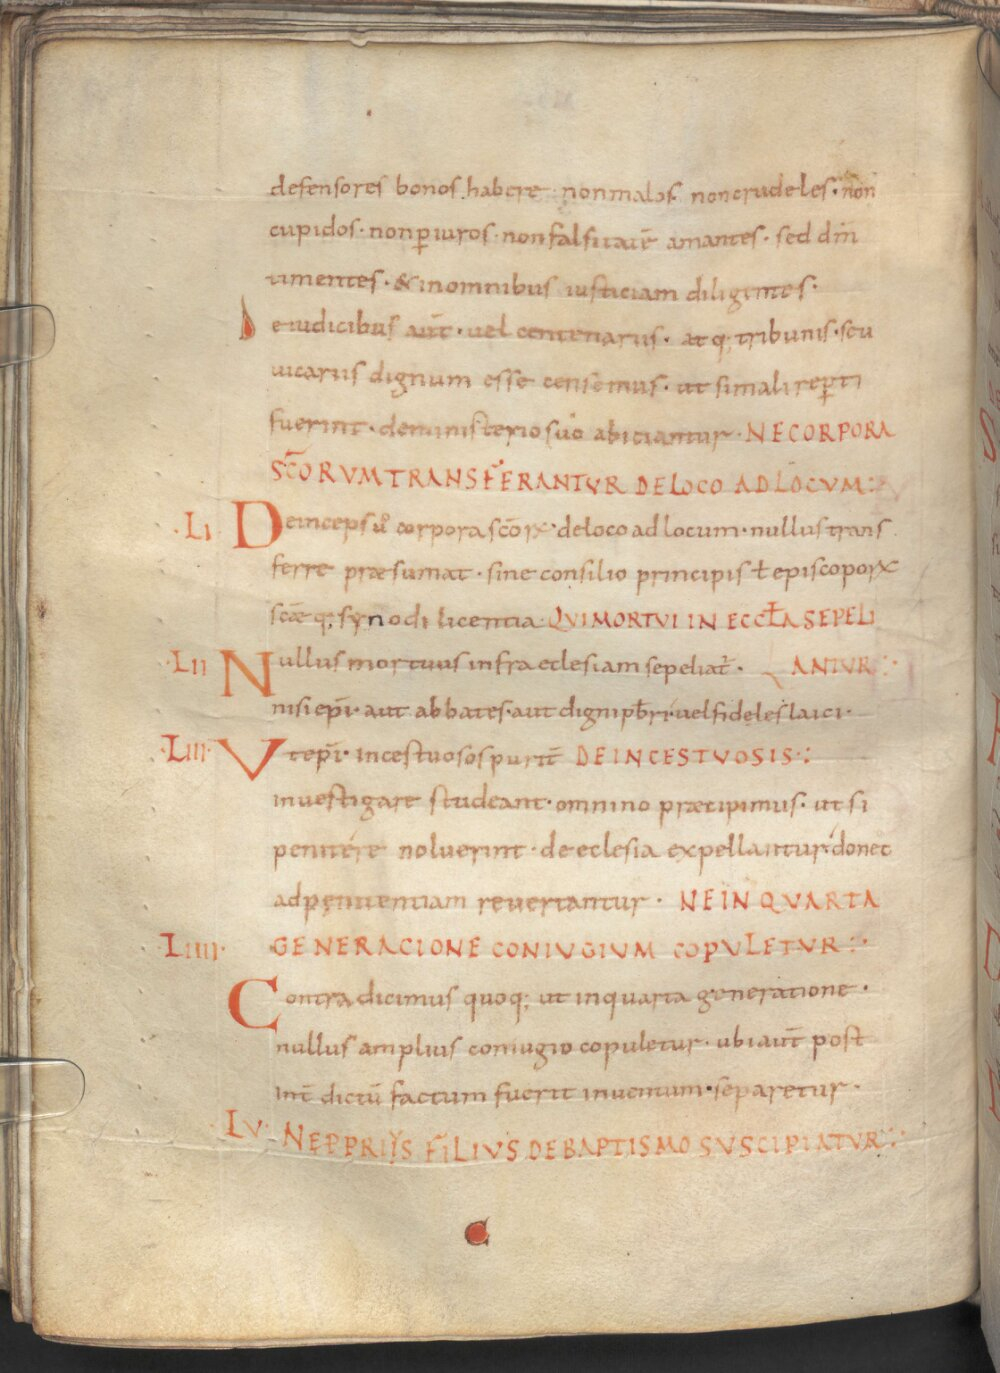 defensores bonos habere · non malos non crudeles · non
cupidos · non ꝑiuros · non falsitatē amantes · sed dn̄m
timentes · & in omnibus iusticiam diligentes ·
De iudicibus aūt · uel centenariis · atq; tribunis · seu
uicariis dignum esse censemus · ut si mali reꝑti
fuerint · de ministerio suo abiciantur · NE CORPORA
SC̄ORVM TRANSFERANTVR DE LOCO AD LOCVM :
· LI · Deinceps ů corpora sc̄oꝝ · de loco ad locum · nullus trans
ferre præsumat · sine consilio principis ł episcopoꝝ
sc̄æq; synodi licentia · QVI MORTVI IN ECCŁA SEPELI
· LII Nullus mortuus infra eclesiam sepeliat̄ · ANTVR :·
nisi ep̄i · aut abbates · aut digni pb̄ri · uel fideles laici ·
· LIII · Vt ep̄i · incestuosos purit̄ DE INCESTVOSIS · :
inuestigare studeant · omnino præcipimus · ut si
penitere noluerint · de eclesia expellantur · donec
ad penitentiam reuertantur · NE IN QVARTA
LIIII · GENERACIONE CONIVGIVM COPVLETVR : ·
Contradicimus quoq; ut in quarta generatione ·
nullus amplius coniugio copuletur · ubi aūt post
int̄dictū factum fuerit inuentum · separetur ·
LV · NE PPRIIS FILIVS DE BAPTISMO SVSCIPIATVR : ·
C